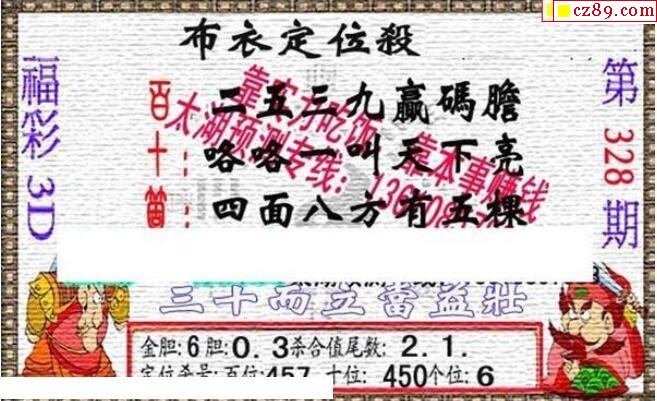 cz89.com
布衣定位殺
福彩3D
第328期
百：二五三九贏碼膽
十：咯咯一叫天下亮
四面八方有五棵
靠实力吃饭 靠本事赚钱
太湖预测专线：
三十而立當益壯
金胆:6胆:0.3杀合值尾数:2.1.
定位杀号:百位:457 十位:450个位:6